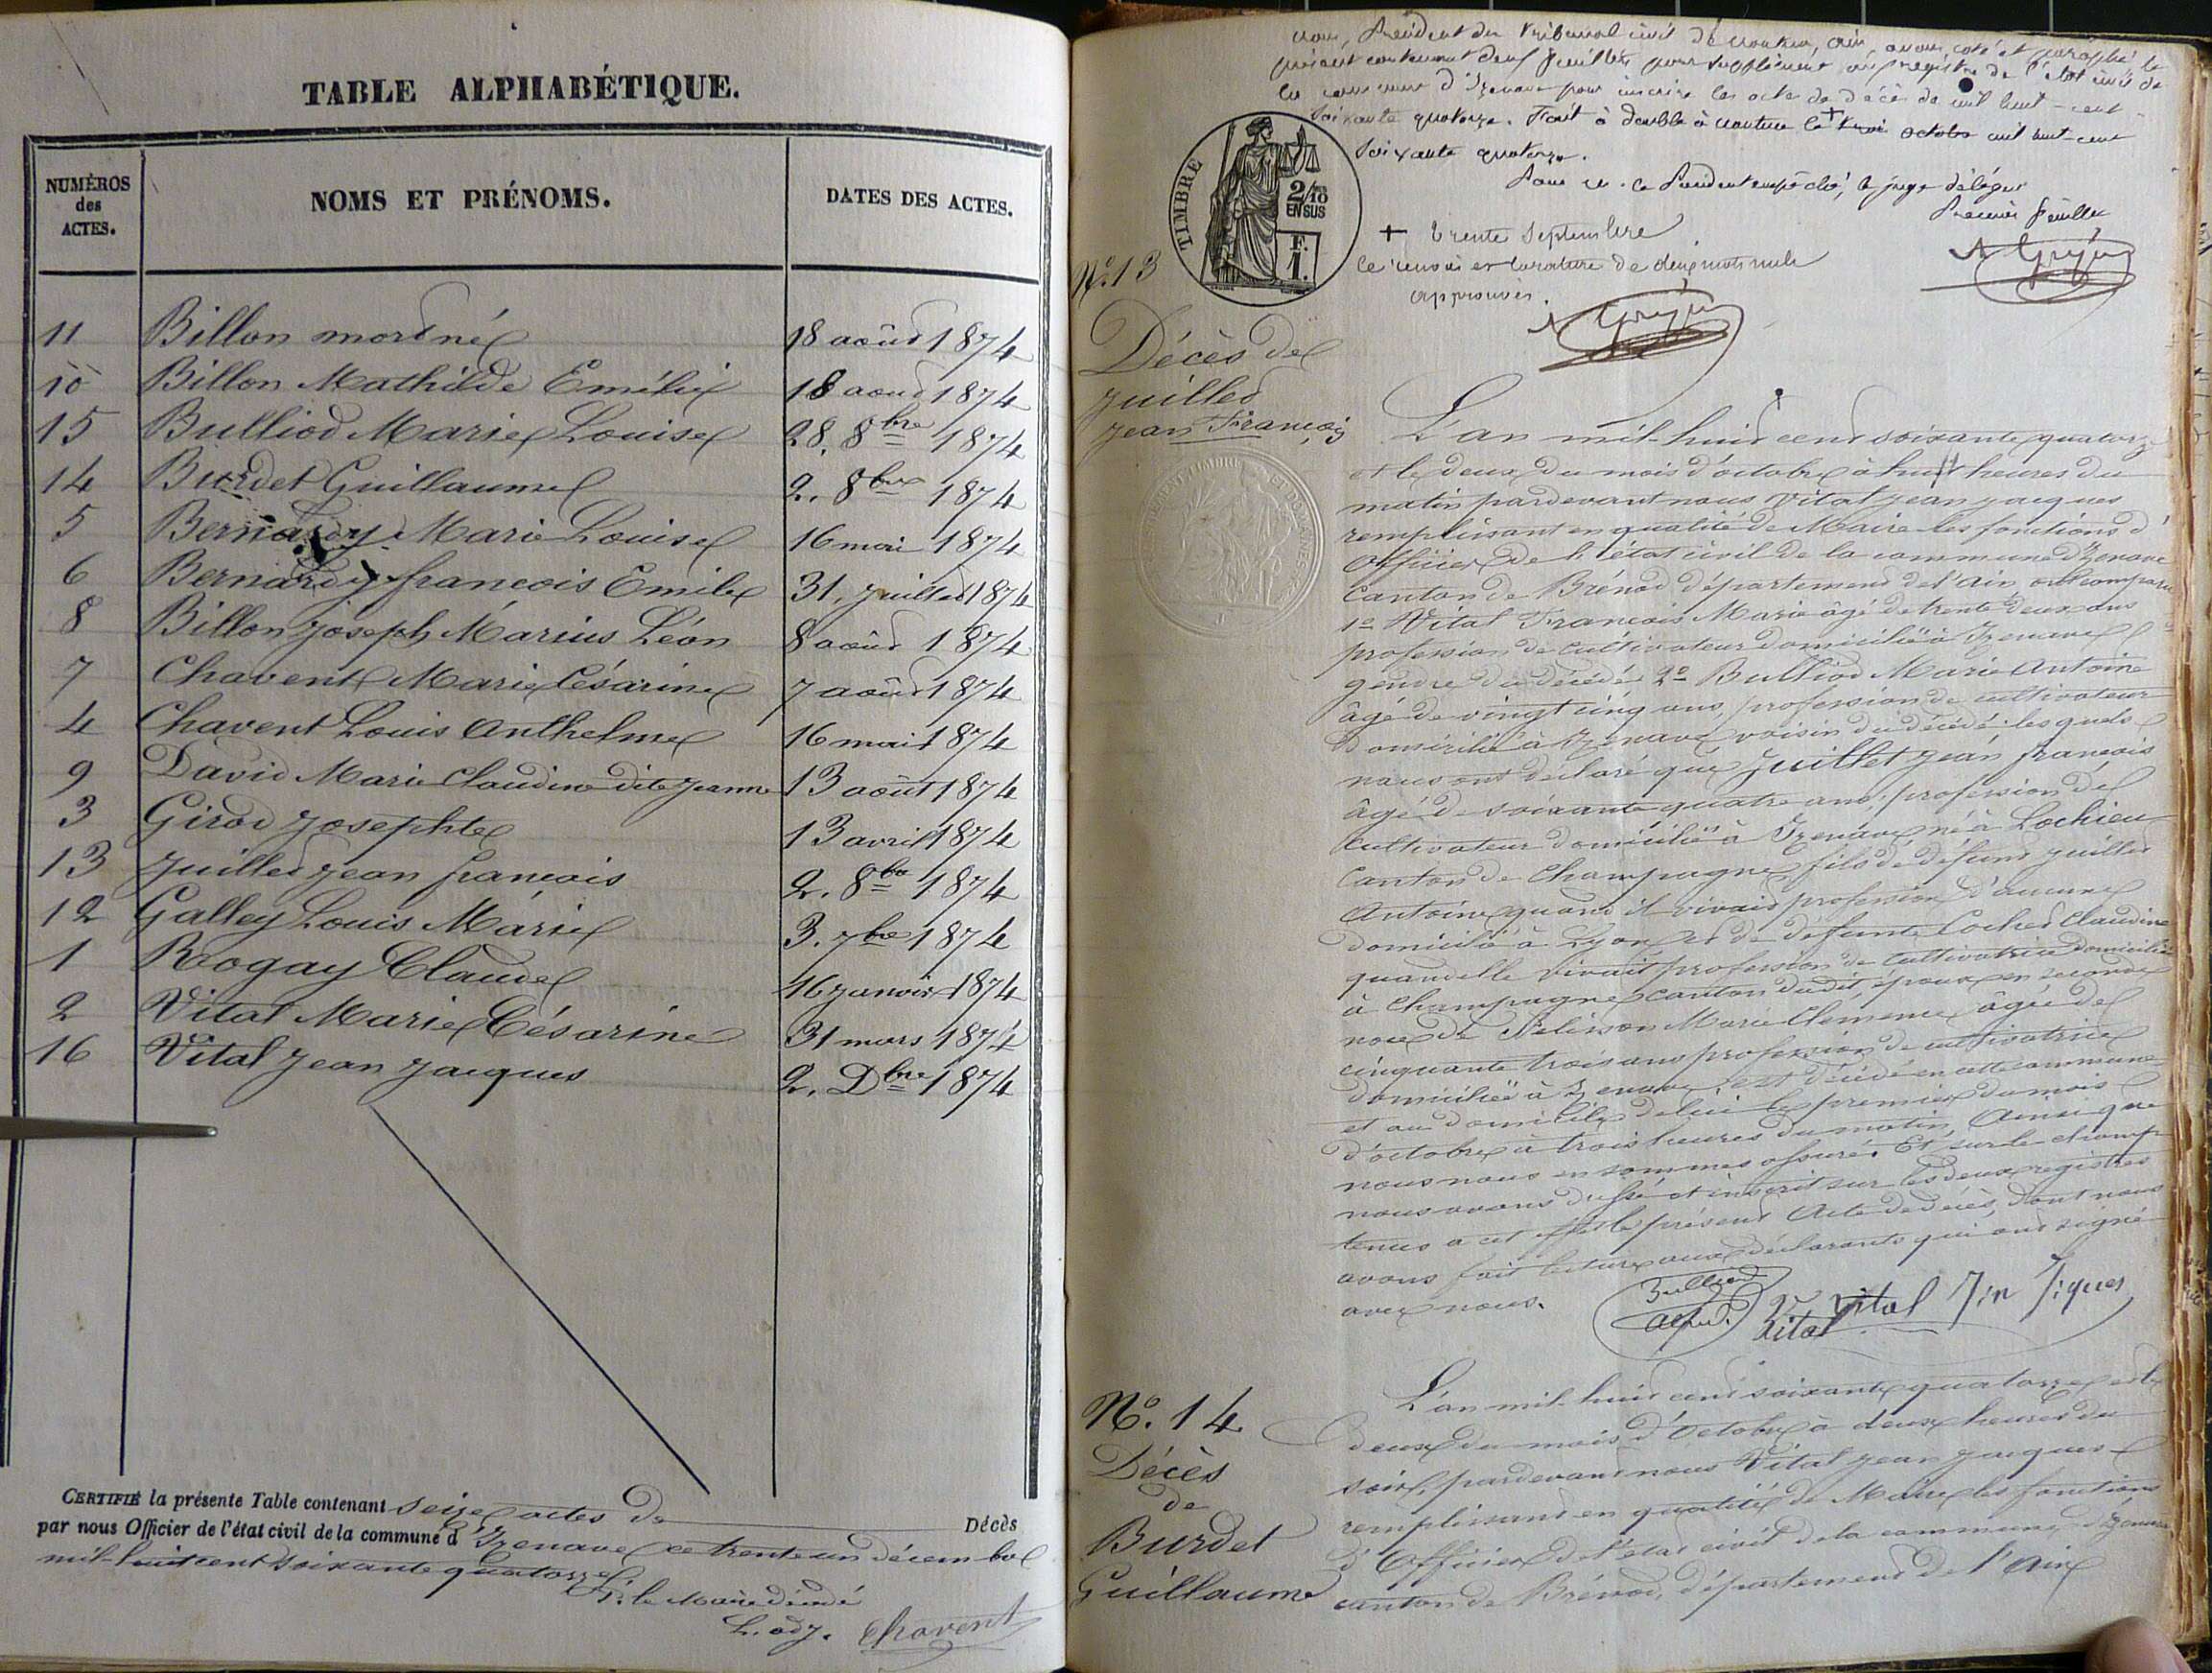 TABLE ALPHABÉTIQUE.
NUMÉROS des ACTES.
NOMS ET PRÉNOMS.
DATES DES ACTES.
11 Billon mort né 18 août 1874
10 Billon Mathilde Emélie 18 aout 1874
15 Bulliod Marie Louise 28. 8bre 1874
14 Burdet Guillaume 2. 8bre 1874
5 Bernardy Marie Louise 16 mai 1874
6 Bernardy francois Emile 31. Juillet 1874
8 Billon Joseph Márius Léon 8 août 1874
7 Chavent Marie Césarine 7 août 1874
4 Chavent Louis Anthelme 16 mai 1874
9 David Marie Claudine dite Jeanne 13 août 1874
3 Girod Josephte 13 avril 1874
13 Juillet Jean francois 2. 8bre 1874
12 Galley Louis Márie 3. 7bre 1874
1 Rogay Claude 16 Janvier 1874
2 Vital Marie Césarine 31 mars 1874
16 Vital Jean Jacques 2. Dbre 1874
CERTIFIÉ la présente Table contenant seize actes de Décès
par nous Officier de l'état civil de la commune d'Izenave ce trente un décembre
mil-huit cent soixante quatorze.
P. le Maire décédé
L. adj. Chavent
nous, Président du Tribunal civil de Nantua, Ain, avons coté et paraphé le
présent contenant deux feuillets pour supplément au registre de l'état civil de
la commune d'Izenave pour inscrire les actes de décès de mil huit-cent
soixante quatorze. Fait à double à Nantua le + trois octobre mil huit-cent
soixante quatorze.
Pour M. le Président empêché, le juge délégué
Premier feuillet
+ trente Septembre
le renvoi et la rature de deux mots nuls
approuvés.
TIMBRE
2/10 EN SUS
F. 1.
No. 13
Décès de
Juillet
Jean Francois
L'an mil-huit cent soixante quatorze
et le deux du mois d'octobre à huit heures du
matin pardevant nous Vital Jean Jacques
remplissant en qualité de Maire les fonctions d'
Officier de l'état civil de la commune d'Izenave
Canton de Brénod département de l'Ain, ont comparu
1o Vital Francois Marie âgé de trente deux ans
profession de cultivateur domicilié à Izenave
gendre du décédé 2o Bulliod Marie Antoine
âgé de vingt cinq ans, profession de cultivateur
domicilié à Izenave voisin du décédé. lesquels
nous ont déclaré que Juillet Jean francois
âgé de soixante quatre ans, profession de
Cultivateur domicilié à Izenave né à Lochieu
Canton de Champagne fils de défunt Juillet
Antoine quand il vivait profession d'aucune
domicilié à Lyon et de défunte Cochet Claudine
quand elle vivait profession de cultivatrice domiciliée
à Champagne canton dudit, époux en seconde
noce de Pelisson Marie Clemence âgée de
cinquante trois ans profession de cultivatrice
domiciliée à Izenave, est décédé en cette commune
et au domicile de lui le premier du mois
d'octobre à trois heures du matin, Ainsi que
nous nous en sommes assuré. Et sur le champ
nous avons dressé et inscrit sur les deux registres
tenus a cet effet le présent Acte de décès, dont nous
avons fait lecture aux déclarants qui ont signé
avec nous.
Bulliod
Vital
Vital Jin Jiques
No. 14
Décès
de
Burdet
Guillaume
L'an mil-huit cent soixante quatorze et le
deux du mois d'Octobre à deux heures du
soir, pardevant nous Vital Jean Jacques
remplissant en qualité de Maire les fonctions
d'Officier de l'état civil de la commune d'Izenave
canton de Brénod, département de l'Ain